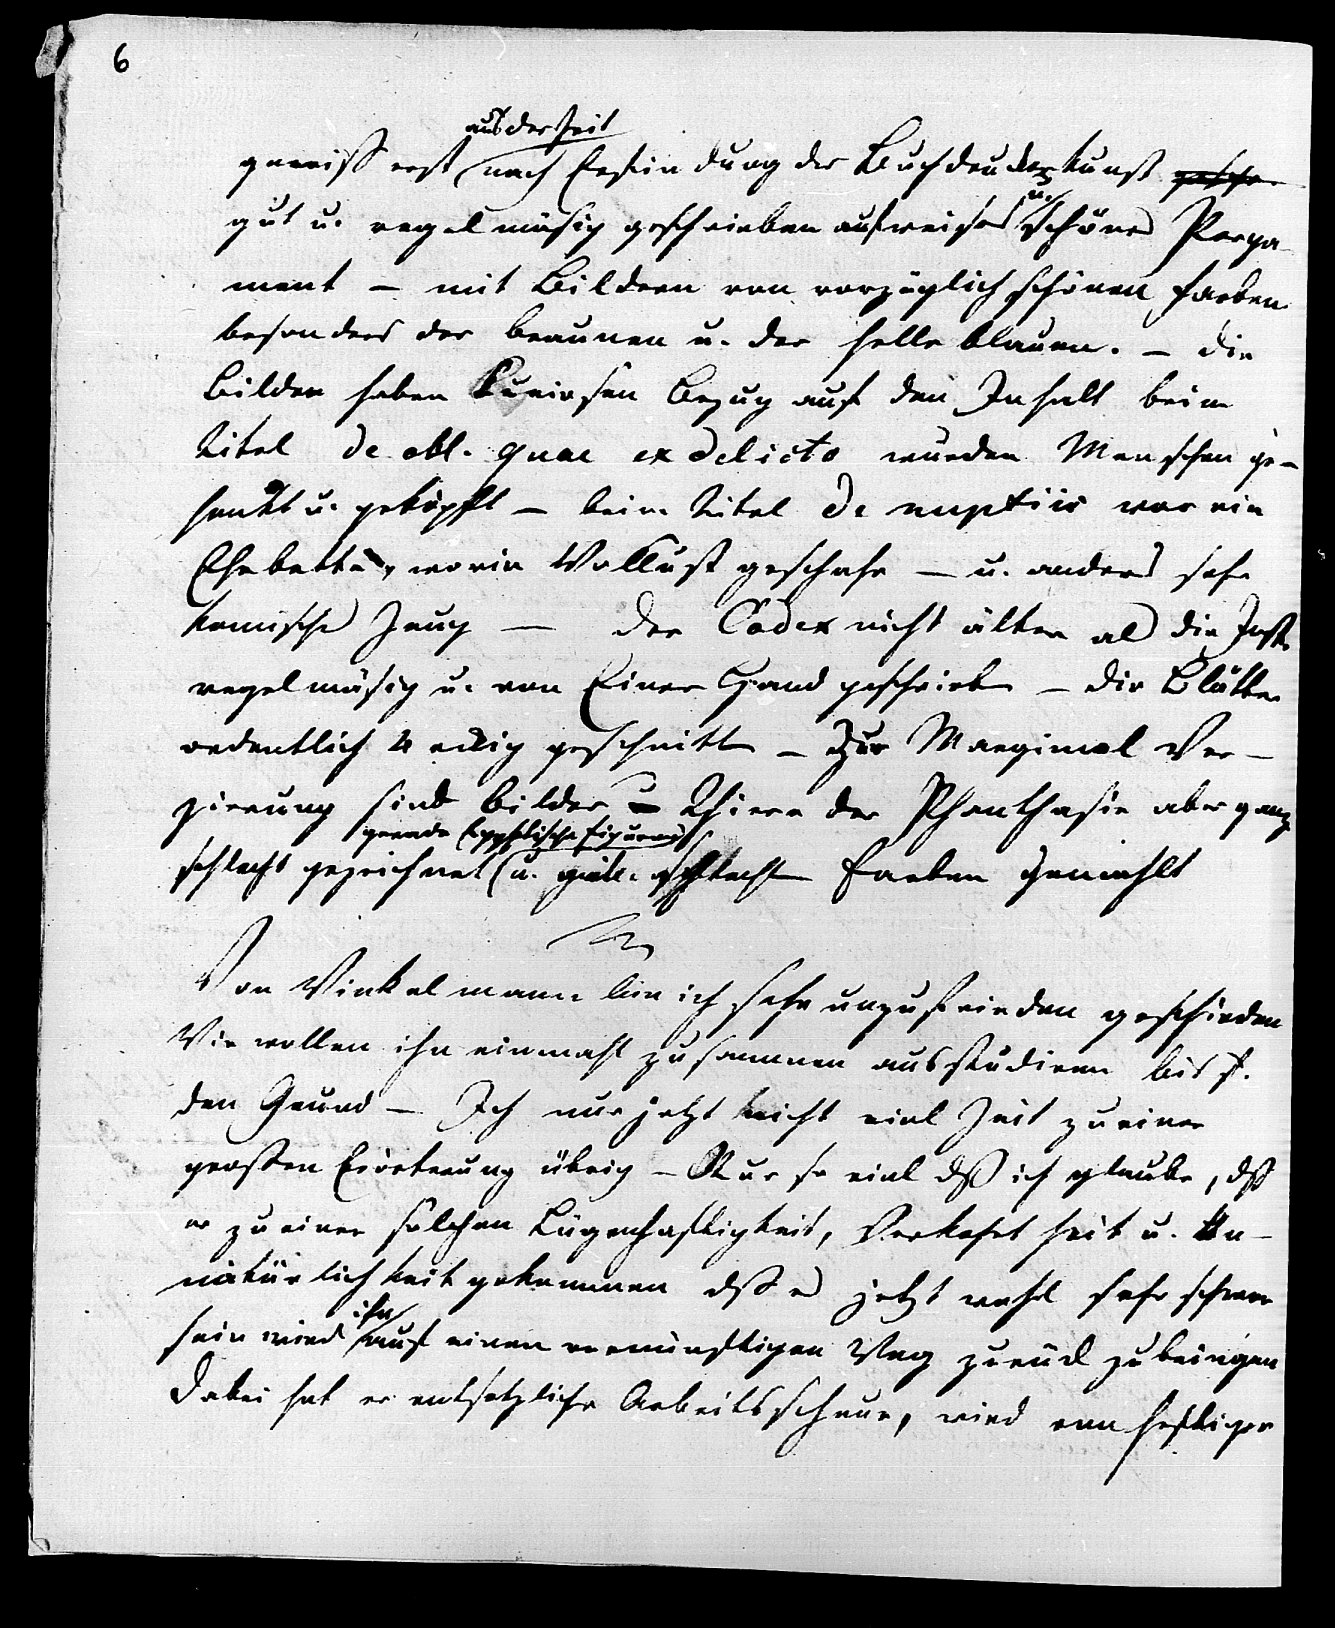 6
aus der Zeit
gewiß erst nach Erfindung der Buchdruckerkunst
gut u. regelmäsig geschrieben auf weises u. schönes Perga-
ment – mit Bildern von vorzüglich schönen Farben
besonders der braunen u. der helle blauen. – die
Bilder haben kuriosen Bezug auf den Inhalt beim
Titel de obl. quae ex delicto wurden Menschen ge-
henkt u. geköpft – beim Titel De nuptiis war ein
Ehebette, worin Wollust geschahe – u. anders sehr
komisches Zeug — der Codex nicht älter als die Inst.
regelmäsig u. von Einer Hand geschrieben – die Blätter
ordentlich 4 eckig geschnitten – Zur Marginal Ver-
zierung sind Bilder u. Thiere der Phanthasie aber ganz
gerade Egyptische Figuren
schlecht gezeichnet u. schlechten Farben gemahlt
Von Winkelmann bin ich sehr unzufrieden geschieden
Wir wollen ihn einmahl zusammen ausstudiren bis f.
den Grund – Ich nur jetzt nicht viel Zeit zu einer
großen Erörterung übrig – Nur so viel dß ich glaube, dß
er zu einer solchen Lügenhaftigkeit, Verkehrtheit u. Un-
natürlichkeit gekommen dß es jetzt wohl sehr schwer
sein wird ihn auf einen vernünftigen Weg zurück zu bringen
Dabei hat er entsetzliche Arbeitsscheue, wird von heftiger